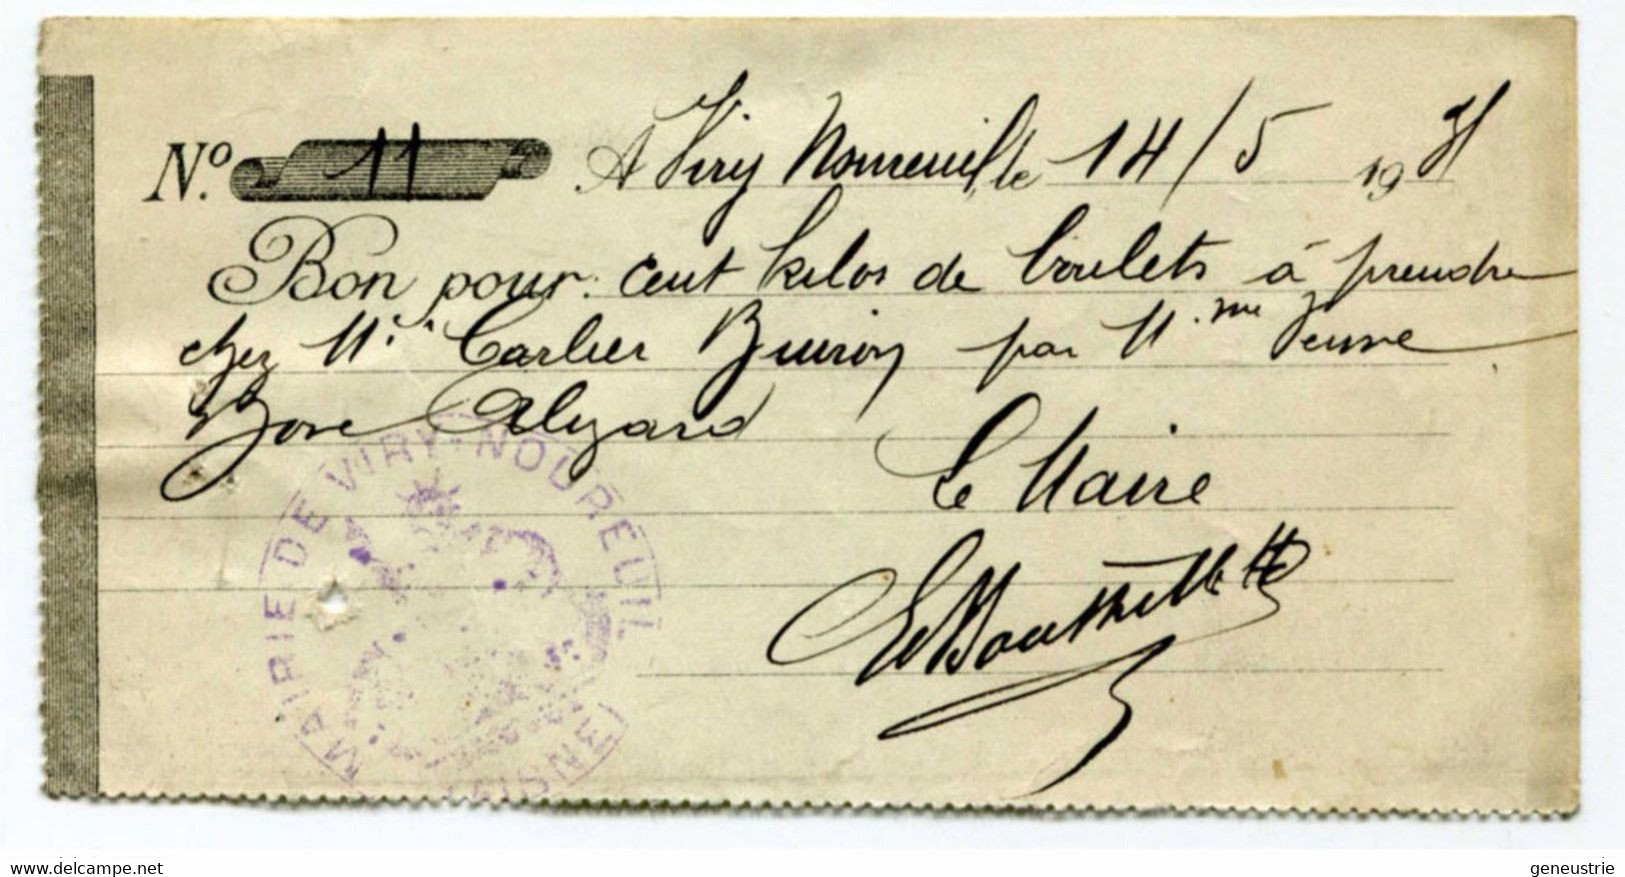 N.º 11 A Viry Noureuil, le 14/5 1931
Bon pour cent kilos de boulets à prendre
chez M. Carlier Buiron par Mme Veuve
Bove Alizard
Le Maire
MAIRIE DE VIRY-NOUREUIL
AISNE
delcampe.net
geneustrie